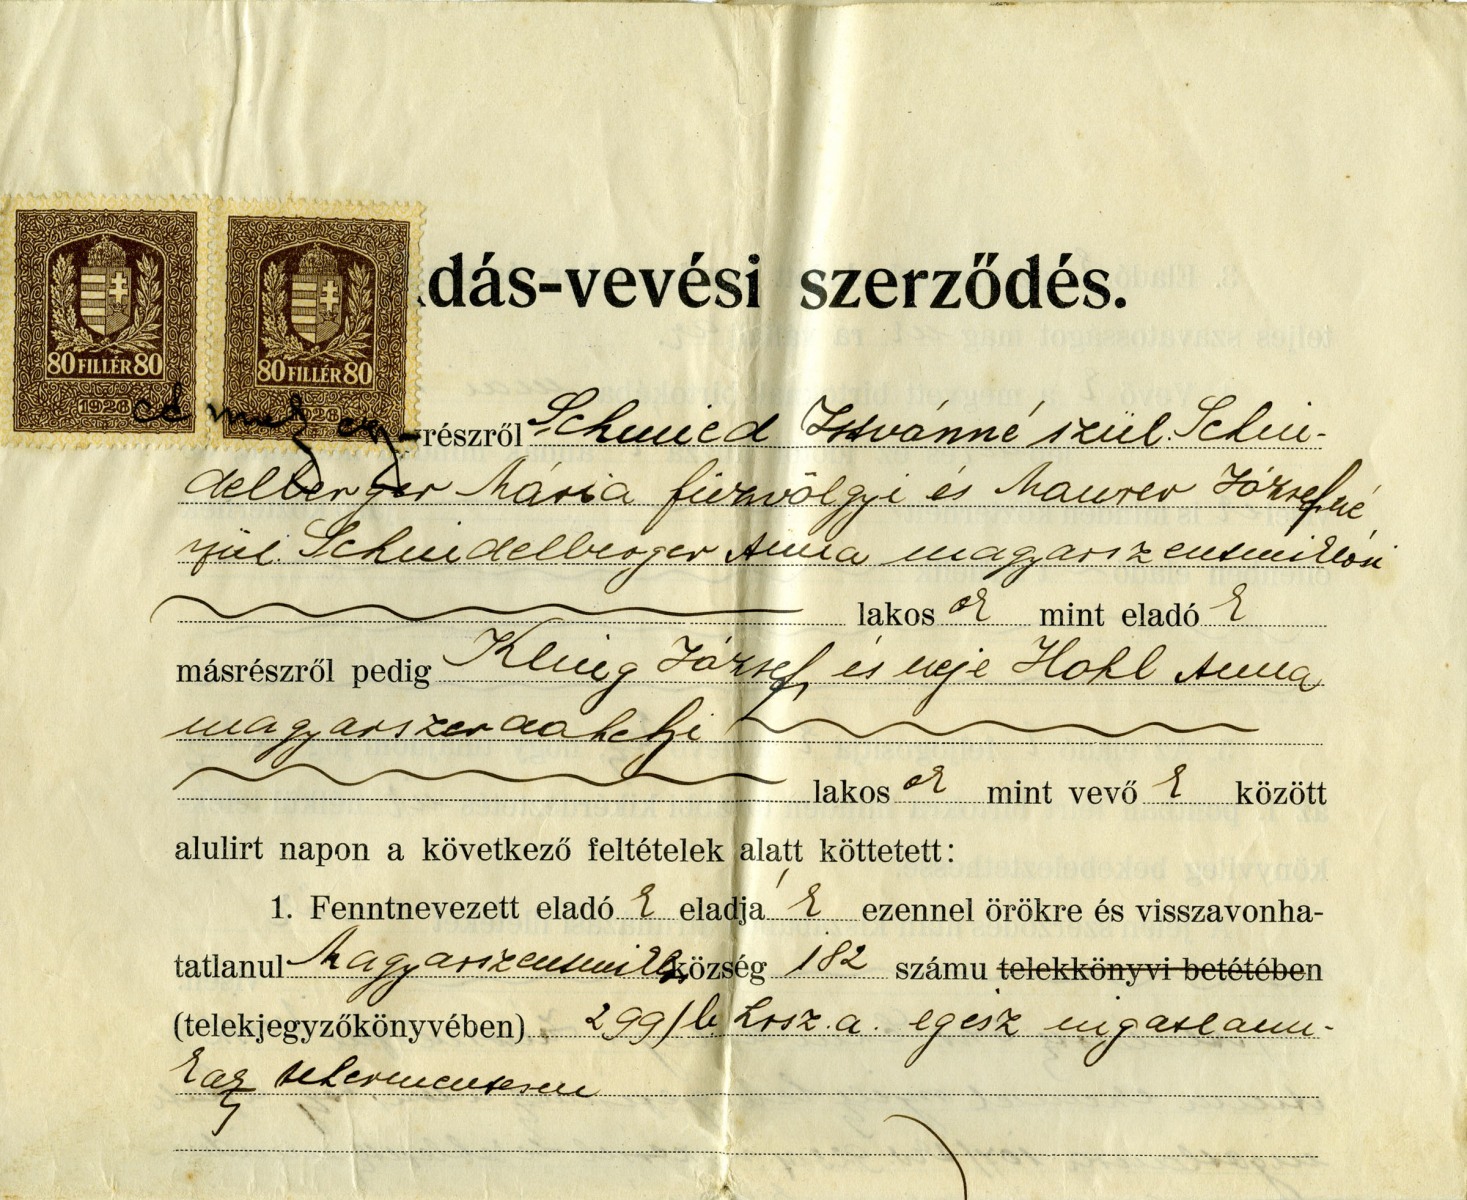 dás-vevési szerződés.
80 FILLÉR 80 80 FILLÉR 80
1926 1926
részről Schmied Istvánné szül. Schin-
delberger Mária füzvölgyi és Maurer Józsefné
szül. Schindelberger Anna magyarszentmiklósi
lakos ok mint eladó k
másrészről pedig Kling József és neje Hohl Anna
magyarszerdahelyi
lakos ok mint vevő k között
alulirt napon a következő feltételek alatt köttetett:
1. Fenntnevezett eladó k eladjá k ezennel örökre és visszavonha-
tatlanul Magyarszentmiklós község 182 számu telekkönyvi betétében
(telekjegyzőkönyvében) 299/b hrsz. a. egész ingatlanu-
kat tehermentesen